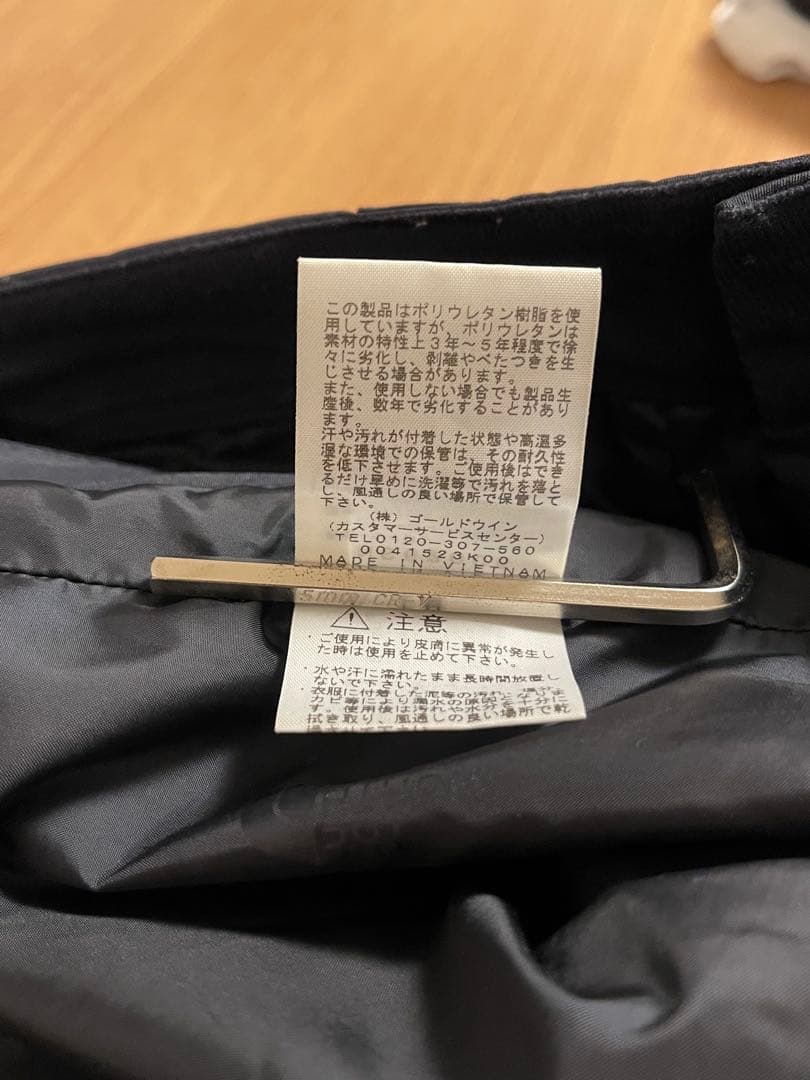 この製品はポリウレタン樹脂を使
用していますが、ポリウレタンは
素材の特性上3年～5年程度で徐
々に劣化し、剥離やべたつきを生
じさせる場合があります。
また、使用しない場合でも製品生
産後、数年で劣化することがあり
ます。
汗や汚れが付着した状態や高温多
湿な環境での保管は、その耐久性
を低下させます。ご使用後はでき
るだけ早めに洗濯等で汚れを落と
し、風通しの良い場所で保管して
下さい。
(株)ゴールドウイン
(カスタマーサービスセンター)
TEL0120-307-560
0041523K00
MADE IN VIETNAM
注意
・ご使用により皮膚に異常が発生し
た時は使用を止めて下さい。
・水や汗に濡れたまま長時間放置し
ないで下さい。
・衣服に付着した泥等の汚れ
カビ等により漏水の原因
す。使用後は汚れや水分を十分に
拭き取り、風通しの良い場所で乾